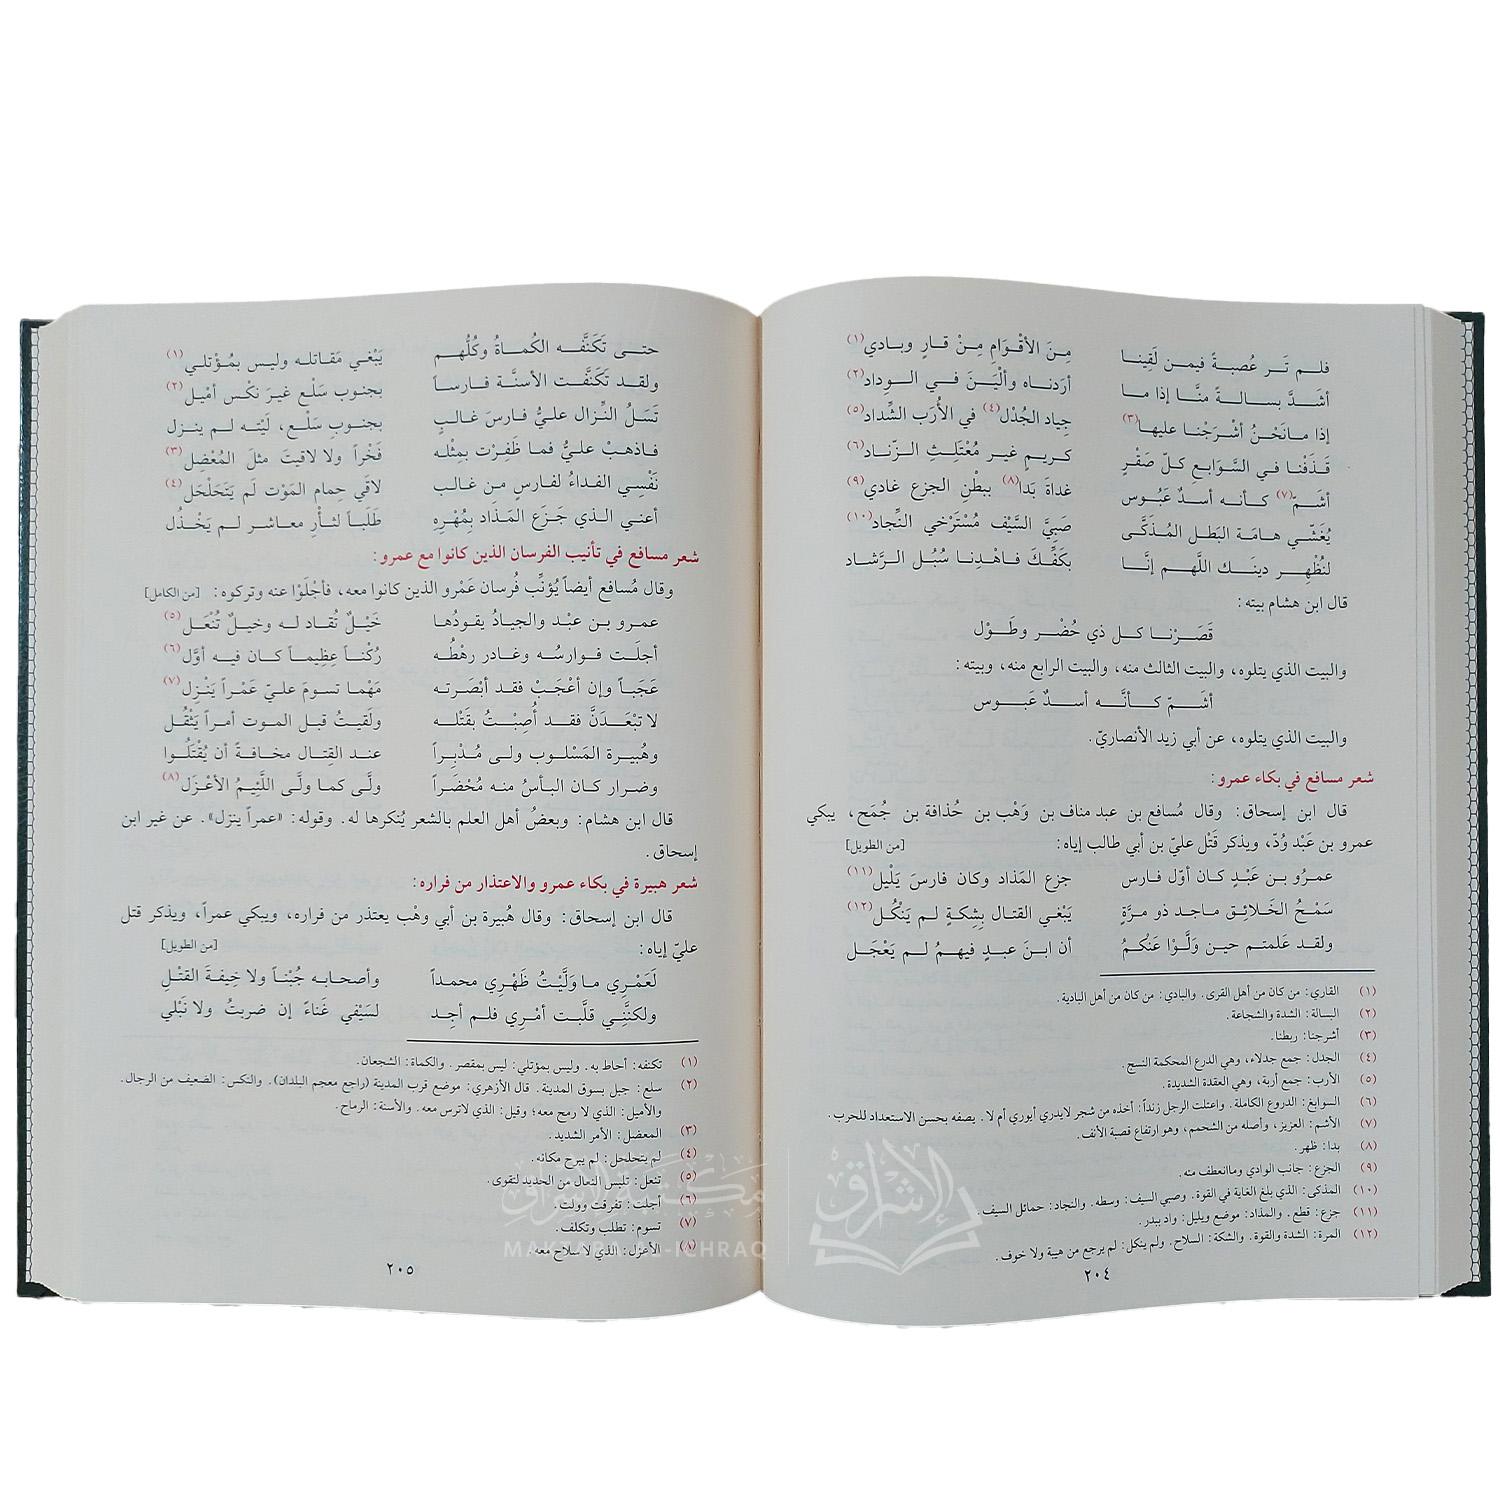 فلم تَر عُصبةً فيمن لَقِينا مِنَ الأقْوَامِ مِنْ قارٍ وبادي(١)
أشَدَّ بسالةً منَّا إذا ما أرَدناه وألْيَنَ في الوِداد(٢)
إذا ما نَحْنُ أشْرَجْنا عليها(٣) جِياد الجُدْل(٤) في الأُرَب الشِّداد(٥)
قذَفْنا في السَّوَابغِ كلّ صَقْرٍ كريمٍ غير مُعْتَلِثِ الزّناد(٦)
أشَمّ(٧) كأنه أسدٌ عَبُوس غداةَ بَدا(٨) ببطْنِ الجزع غادي(٩)
يُغَشّي هامَة البَطل المُذَكَّى صَبِيَّ السَّيْف مُسْتَرْخي النِّجاد(١٠)
لنُظْهِر دينَك اللَّهم إنَّا بكَفِّكَ فاهْدِنا سُبُل الرَّشاد
قال ابن هشام بيته:
قَصَرْنا كل ذي حُضْر وطَوْل
والبيت الذي يتلوه، والبيت الثالث منه، والبيت الرابع منه، وبيته:
أشَمّ كأنَّه أسدٌ عَبوس
والبيت الذي يتلوه، عن أبي زيد الأنصاريّ.
شعر مسافع في بكاء عمرو:
قال ابن إسحاق: وقال مُسافع بن عبد مناف بن وَهْب بن حُذافة بن جُمَح، يبكي
عمرو بن عَبْد وُدّ، ويذكر قَتْل عليّ بن أبي طالب إياه: [من الطويل]
عمرُو بن عَبْدٍ كان أوّل فارس جزع المَذَاد وكان فارسَ يَلْيل(١١)
سَمْحُ الخَلائق ماجد ذو مرَّة يَبْغي القتال بِشِكةٍ لم يَنْكُل(١٢)
ولقد عَلمتم حين وَلَّوْا عَنْكُمُ أن ابنَ عبدٍ فيهمُ لم يَعْجَل
(١) القاري: من كان من أهل القرى. والبادي: من كان من أهل البادية.
(٢) البسالة: الشدة والشجاعة.
(٣) أشرجنا: ربطنا.
(٤) الجدل: جمع جدلاء، وهي الدرع المحكمة النسج.
(٥) الأرب: جمع أربة، وهي العقدة الشديدة.
(٦) السوابغ: الدروع الكاملة. واعتلث الرجل زنداً: أخذه من شجر لا يدري أيوري أم لا. يصفه بحسن الاستعداد للحرب.
(٧) الأشم: العزيز، وأصله من الشحم، وهو ارتفاع قصبة الأنف.
(٨) بدا: ظهر.
(٩) الجزع: جانب الوادي وما انعطف منه.
(١٠) المذكى: الذي بلغ الغاية في القوة. وصبي السيف: وسطه. والنجاد: حمائل السيف.
(١١) جزع: قطع. والمذاد: موضع ويليل: واد ببدر.
(١٢) المرة: الشدة والقوة. والشكة: السلاح. ولم ينكل: لم يرجع من هيبة ولا خوف.
٢٠٤
حتى تَكَنَّفه الكُماةُ وكُلُّهم يَبْغي مَقاتله وليس بمُؤتلي(١)
ولقد تَكَنَّفت الأسنَّة فارساً بجنوب سَلْع غيرَ نكْس أمْيل(٢)
تَسَلُ النِّزال عليُّ فارسَ غالبٍ بجنوبِ سَلْع، لَيْته لم ينزل
فاذهبْ عليُّ فما ظَفِرْت بمِثْله فَخْراً ولا لاقيتَ مثلَ المُعْضِل(٣)
نَفْسِي الفداءُ لفارسٍ من غالب لاقَى حِمام المَوْت لَم يَتَحَلْحَل(٤)
أعني الذي جَزَع المَذَاد بمُهْرِه طَلَباً لثأْرِ معاشر لم يَخْذُل
شعر مسافع في تأنيب الفرسان الذين كانوا مع عمرو:
وقال مُسافع أيضاً يُؤنِّب فُرسان عَمْرو الذين كانوا معه، فأجْلَوْا عنه وتركوه: [من الكامل]
عمرو بن عبْد والجيادُ يقودُها خَيْلٌ تُقاد له وخيلٌ تُنْعَل(٥)
أجلَت فوارسُه وغادر رهْطُه رُكْناً عظِيماً كان فيه أوَّل(٦)
عَجَباً وإن أعْجَبْ فقد أبْصَرته مَهْما تسومَ عليّ عَمْراً يَنْزِل(٧)
لا تبْعَدَنَّ فقد أُصِبْتُ بقَتْله ولَقيتُ قبل الموت أمراً يَثْقُل
وهُبيرة المَسْلوب ولى مُدْبِراً عند القِتال مخافةً أن يُقْتَلُوا
وضرار كان البأسُ منه مُحْضَراً ولَّى كما ولَّى اللَّئِيمُ الأعْزَل(٨)
قال ابن هشام: وبعضُ أهل العلم بالشعر يُنكرها له. وقوله: «عمراً ينزل». عن غير ابن
إسحاق.
شعر هبيرة في بكاء عمرو والاعتذار من فراره:
قال ابن إسحاق: وقال هُبيرة بن أبي وهْب يعتذر من فراره، ويبكي عمراً، ويذكر قتل
عليّ إياه: [من الطويل]
لَعَمْرِي ما وَلَّيْتُ ظَهْرِي محمداً وأصحابه جُبْناً ولا خِيفةَ القتْلِ
ولكنَّنِي قلَّبت أمْرِي فلم أجِد لسَيْفي غَناءً إن ضربتُ ولا نَبْلي
(١) تكنفه: أحاط به. وليس بمؤتلي: ليس بمقصر. والكماة: الشجعان.
(٢) سلع: جبل بسوق المدينة. قال الأزهري: موضع قرب المدينة (راجع معجم البلدان). والنكس: الضعيف من الرجال.
والأميل: الذي لا رمح معه؛ وقيل: الذي لا ترس معه. والأسنة: الرماح.
(٣) المعضل: الأمر الشديد.
(٤) لم يتحلحل: لم يبرح مكانه.
(٥) تنعل: تلبس النعال من الحديد لتقوى.
(٦) أجلت: تفرقت وولت.
(٧) تسوم: تطلب وتكلف.
(٨) الأعزل: الذي لا سلاح معه.
٢٠٥
مكتبة الإشراق
MAKTABA AL-ICHRAQ
الإشراق